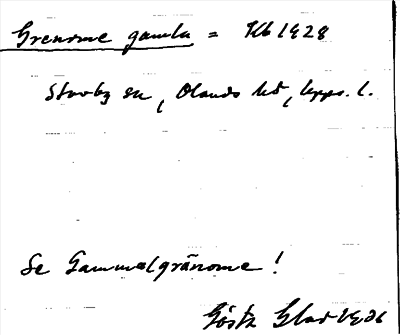 Grenome gamla = Ub 1928
Stavby sn, Olands hd, Upps. l.
Se Gammelgränome!
Gösta